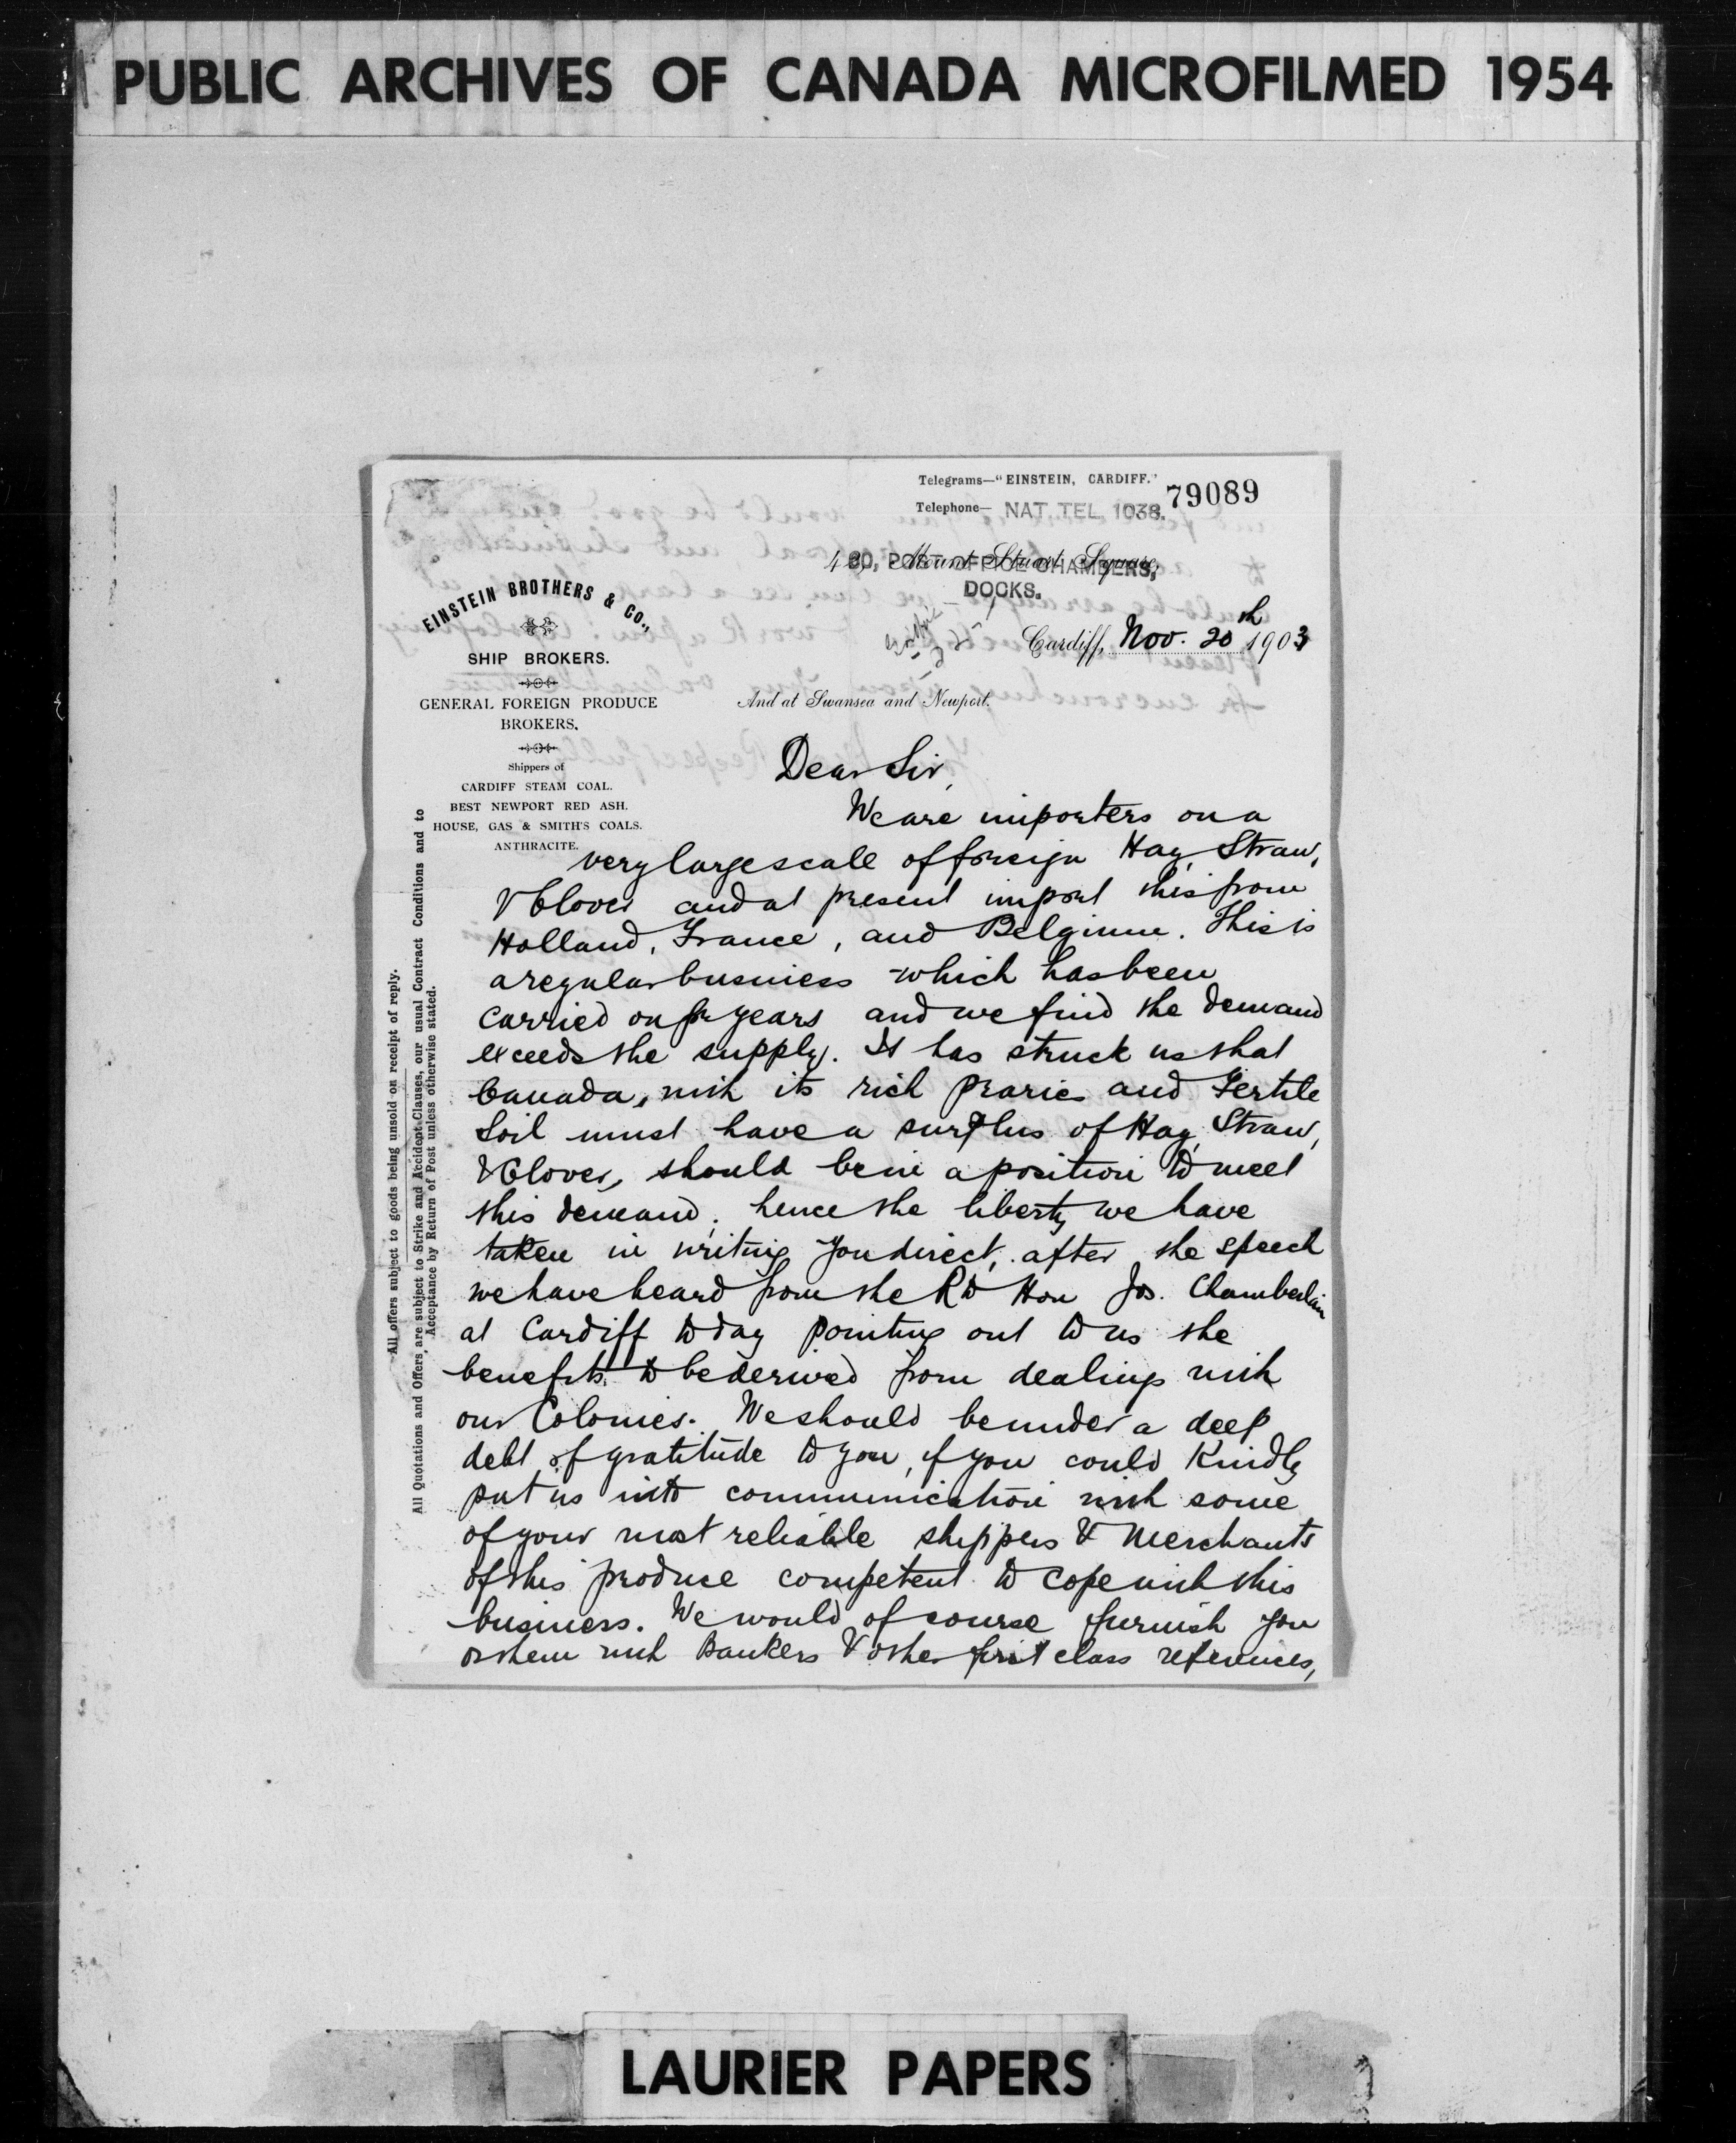 PUBLIC ARCHIVES OF CANADA MICROFILMED 1954
Telegrams—"EINSTEIN, CARDIFF."
79089
Telephone— NAT. TEL. 1038.
Mount Stuart Square,
POST OFFICE CHAMBERS,
DOCKS.
EINSTEIN BROTHERS & CO.,
SHIP BROKERS.
GENERAL FOREIGN PRODUCE
BROKERS.
Shippers of
CARDIFF STEAM COAL.
BEST NEWPORT RED ASH.
HOUSE, GAS & SMITH'S COALS.
ANTHRACITE.
Cardiff, Nov. 20th 1903
And at Swansea and Newport.
All offers subject to goods being unsold on receipt of reply.
All Quotations and Offers, are subject to Strike and Accident Clauses, our usual Contract Conditions and to
Acceptance by Return of Post unless otherwise stated.
Dear Sir,
We are importers on a
very large scale of foreign Hay, Straw,
& Clover and at present import this from
Holland, France, and Belgium. This is
a regular business which has been
carried on for years and we find the demand
exceeds the supply. It has struck us that
Canada, with its rich Praries and Fertile
Soil must have a surplus of Hay, Straw,
& Clover, should be in a position to meet
this demand; hence the liberty we have
taken in writing you direct, after the speech
we have heard from the Rt Hon Jos. Chamberlain
at Cardiff to day pointing out to us the
benefits to be derived from dealings with
our Colonies. We should be under a deep
debt of gratitude to you, if you could Kindly
put us into communication with some
of your most reliable shippers & Merchants
of this produce competent to cope with this
business. We would of course furnish you
or them with Bankers & other first class references,
LAURIER PAPERS